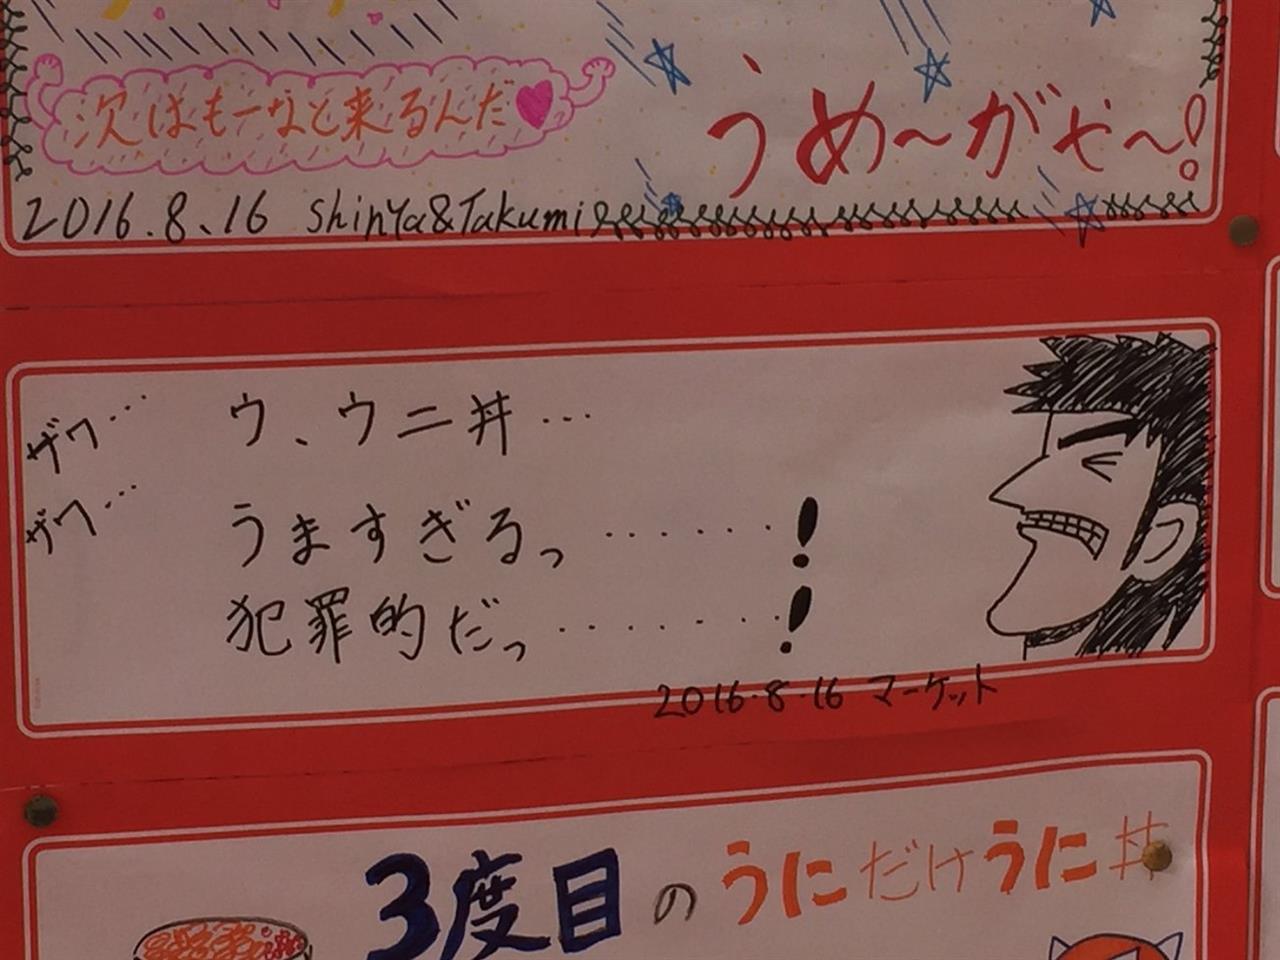 次はもーなと来るんだ
うめ〜がや〜!
2016.8.16 Shinya&Takumi
ザワ…
ザワ…
ウ、ウニ丼…
うますぎるっ………!
犯罪的だっ…………!
2016.8.16 マーケット
3度目のうにだけうに丼